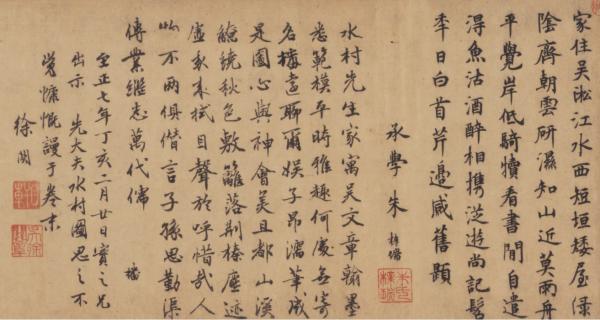 家住吳淞江水西短垣矮屋緑
陰齊朝雲研濕知山近莫雨舟
平覺岸低騎犢看書閒自遣
得魚沽酒醉相携從遊尚記髫
年日白首芹邊感舊題
承學朱
水村先生家寓吳文章翰墨
悉範模平時雅趣何處無寄
名遠聊爾娛子昂濡筆成
是圖心與神會美且都山溪
繞秋色敷籬落荆榛塵迹
虛我来拭目聲於呼惜哉人
不两俱偕言子孫思勤渠
傳業継志萬代儒
至正七年丁亥二月廿日實之兄
出示 先大夫水村圖思之不
覺慷慨謾于卷末
徐関